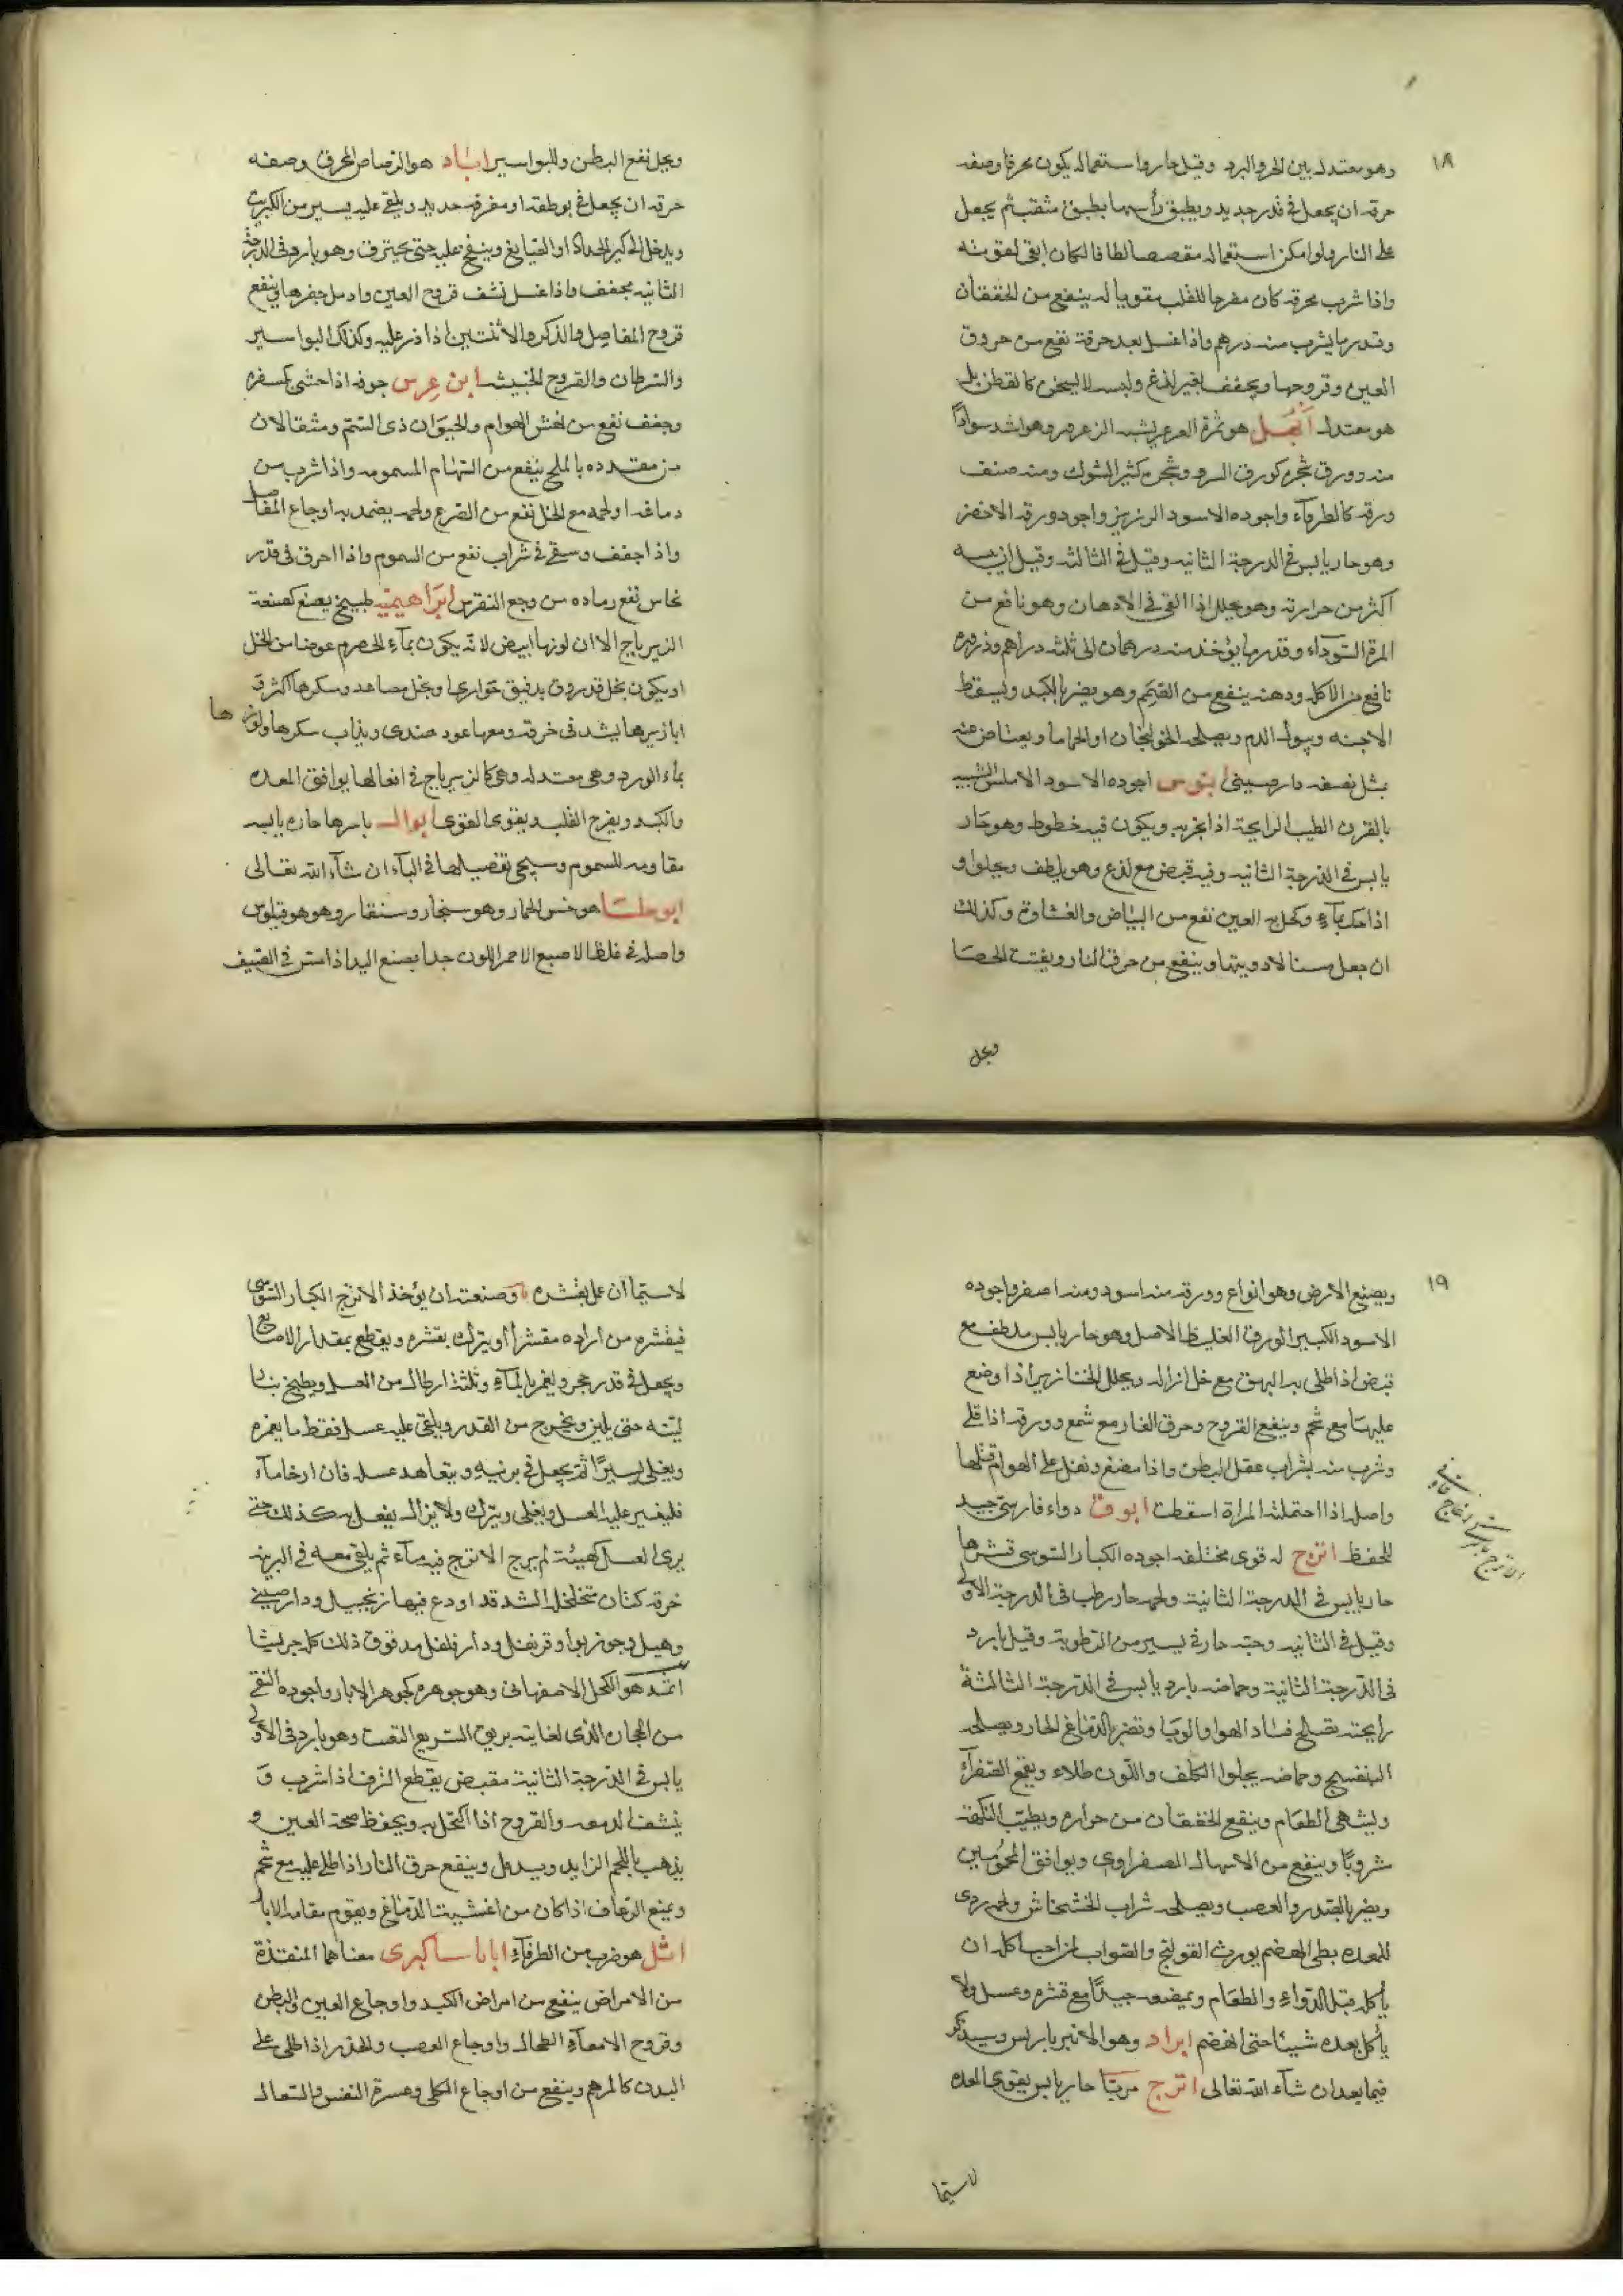 ١٨
وهو معتدل بين الحر والبرد وقيل حار واستعماله يكون محرقا وصفه
حرقه ان يجعل فى قدر جديد ويطبق رأسها بطبق مثقب ثم يجعل
على النار ولو امكن استعماله مقصصا لطافا لكان ابقى لقوته
واذا شرب محرقه كان مفرحا للقلب مقويا له ينفع من الخفقان
وقدر ما يشرب منه درهم واذا غسل بعد حرقه نفع من حروق
العين وقروحها ويجفف بغير لذع ولبسه لا يسخن كالقطن بل
هو معتدل أبهل هو ثمرة العرعر يشبه الزعرور وهو اشد سوادًا
منه وورق شجره كورق السرو وشجره كثير الشوك ومنه صنف
ورقه كالطرفآء واجوده الاسود الرزين واجود ورقه الاخضر
وهو حار يابس فى الدرجة الثانيه وقيل فى الثالثه وقيل ان يبسه
أكثر من حرارته وهو يحلل اذا القى فى الادهان وهو نافع من
المرة السّودآء وقدر ما يؤخذ منه درهمان الى ثلثه دراهم وذروره
نافع من الاكله ودهنه ينفع من الصمم وهو يضر بالكبد ويسقط
الاجنه ويبول الدم ويصلحه الخولنجان او الحماما ويعتاض عنه
بمثل نصفه دارصينى ابنوس اجوده الاسود الاملس الشبيه
بالقرن الطيب الرايحة اذا بخر به ويكون فيه خطوط وهو حار
يابس فى الدرجة الثانيه وفيه قبض مع لذع وهو يلطف ويجلوا و
اذا حك بمآءٍ وكحل به العين نفع من البياض والغشاوة وكذلك
ان جعل مسنا لادويتها وينفع من حرق النار ويفتت الحصا
ويحل
ويحل نفع البطن وللبواسير اباد هو الرصاص المحرق وصفه
حرقه ان يجعل فى بوطقه او مغرفه حديد ويلقى عليه يسير من الكبريت
ويدخل الى كير الحداد او الصّايغ وينفخ عليه حتى يحترق وهو بارد فى الدرجة
الثانيه مجفف واذا غسل نشف قروح العين وادمل حفرها وينفع
قروح المفاصل والذكر والانثيين اذا ذر عليه وكذلك البواسير
والسرطان والقروح الخبيثه ابن عرس جوفه اذا حشى كسفره
وجفف نفع من نهش الهوام والحيوان ذى السّم ومثقالان
من مقدده بالملح ينفع من السّهام المسمومه واذا شرب من
دماغه او لحمه مع الخل نفع من الصرع ولحمه يضمد به اوجاع المفاصل
واذا جفف وسقى فى شراب نفع من السموم واذا احرق فى قدر
نحاس نفع رماده من وجع النقرس ابراهيميّه طبيخ يصنع كصنعة
الزيرباج الا ان لونها ابيض لانه يكون بمآءِ الحصرم عوضا من الخل
او يكون بخل قد روق بدقيق حوارى او بخل مصاعد وسكرها اكثر و
ابازيرها يشد فى خرقه ومعها عود هندى ويذاب سكرها ولوزها
بمآء الورد وهى معتدله وهى كالزيرباج فى افعالها يوافق المعده
والكبد ويفرح القلب ويقوى القوى ابوال باسرها حاره يابسه
مقاومه للسموم وسيجى تفصيلها فى البآء ان شآء الله تعالى
ابو حلسا هو خس الحمار وهو سنجار وسنقار وهو هو قيلوس
واصله فى غلظ الاصبع الاحمر اللون جدا يصنع اليد اذا مسّ فى الصّيف
١٩
ويصنع الارض وهو انواع وورقه منه اسود ومنه اصفر واجوده
الاسود الكبير الورق الغليظ الاصل وهو حار يابس ملطف مع
قبض اذا طلى به البهق مع خل ازاله ويحلل الخنازير اذا وضع
عليها مع شحم وينفع القروح وحرق النار مع شمع وورقه اذا قلى
وشرب منه بشراب عقل البطن واذا مضغ وتفل على الهوام قتلها
واصله اذا احتملته المراة اسقطت ابوق دواء فارسىّ جيد
للحفظ اترج له قوى مختلفه اجوده الكبار السّوسى قشرها
حار يابس فى الدرجة الثانية ولحمه حار رطب فى الدرجة الاولى
وقيل فى الثانيه وحبه حار فى يسير من الرّطوبة وقيل بارد
فى الدّرجة الثانية وحماضه بارد يابس فى الدّرجة الثالثة
رايحته تصلح فساد الهوا والوبا وتضر بالدّماغ الحار ويصلحه
البنفسج وحماضه يجلوا الكلف واللّون طلاء ويقمع الصّفرآء
ويشهى الطعام وينفع الخفقان من حراره ويطيّب النكهه
شروبًا وينفع من الاسهال الصفراوى ويوافق المحمومين
ويضر بالصّدر والعصب ويصلحه شراب الخشخاش ولحمه ردى
للمعده بطى الهضم يورث القولنج والصّواب لمن احب اكله ان
يأكله قبل الدّوآءِ والطعام ويمضغه جيدًا مع قشره وعسل ولا
يأكل بعده شيئا حتى انهضم ابراد وهو الانبرباريس وسيذكر
فيما بعد ان شآء الله تعالى اترج مربّا حار يابس يقوى المعده
لاسيّما
لاسيّما ان عمل بقشره وصنعته ان يؤخذ الاترج الكبار السّوسى
فيقشره من اراده مقشرًا او يترك بقشره ويقطع بمقدار الاصابع
ويجعل فى قدر حجر ويغمر بالمآءِ وثلثة ارطال من العسل ويطبخ بنار
ليّنه حتى يلين ويخرج من القدر ويلقى عليه عسل فقط ما يغمره
ويغلى يسيرًا ثمّ يجعل فى برنيهِ ويتعاهد عسله فان ارخا مآء
فليغير عليه العسل ويغلى ويترك ولا يزال يفعل به كذلك حتى
يرى العسل كهيئة لم يرج الاترج فيه مآء ثم يلقى معه فى البرنيه
خرقه كتان متخلخل الشد قد اودع فيها زنجبيل ودارصينى
وهيل وجوزبوا وقرنفل ودارفلفل مدقوق ذلك كله جريشا
اثمد هو الكحل الاصفهانى وهو جوهره كجوهر الابار واجوده النقى
من الحجاره الذى لفتاته بريق السّريع التفتت وهو بارد فى الاولى
يابس فى الدّرجة الثانية مقبض يقطع النزف اذا شرب و
ينشف الدمعه والقروح اذا اكتحل به ويحفظ صحة العين و
يذهب باللحم الزايد ويدمل وينفع حرق النار اذا طلى عليه مع شحم
ويمنع الرّعاف اذا كان من اغشية الدّماغ ويقوم مقامه الابار
اثل هو ضرب من الطرفآءِ اباناسا كبرى معناها المنقذة
من الامراض ينفع من امراض الكبد واوجاع العين والبطن
وقروح الامعآءِ الطحال واوجاع العصب والخدر اذا طلى على
البدن كالمرهم وينفع من اوجاع الكلى وعسرة النفس والسّعال